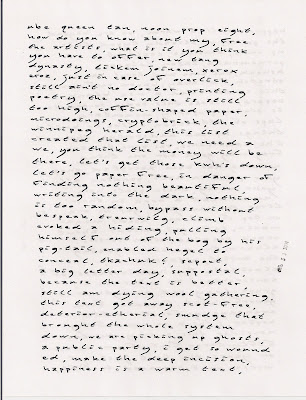 nbe queen tan, noon prop eight,
how do you know about my, free
the artists, what is it you think
you have to offer, new tang
dynasty, tickem joinem, xerox
eroz, just in case of overlick,
still aint no doctor, printing
poetry, the use value is still
too high, coffin shaped paper,
microdoings, cryptobrick, the
winnipeg herald, this list
created that list, we need a
we, you think the money will be
there, let's get those kwh's down,
let's go paper free, in danger of
finding nothing beautiful,
writing into the dark, nothing
is too random, bypass without
bespeak, climb
erobed a hiding, pulling
himself out of the bog by his
pig-tail, enabled hegel to
conceal,
a big letter day, snppostal,
because the text is better,
still am dying wool gathering,
this text got away scot-free,
deterior-etherial, smudge that
brought the whole system
down, we are picking up ghosts,
a public party, i get so wound
ed, make the deep incision,
happiness is a warm text,